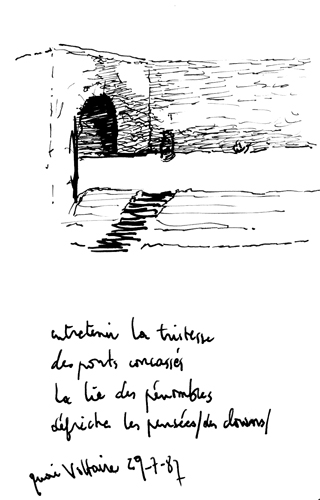 entretenir la tristesse
des ponts concassés
la lie des pénombres
défriche les pensées/des clowns/
quai Voltaire 29-7-87